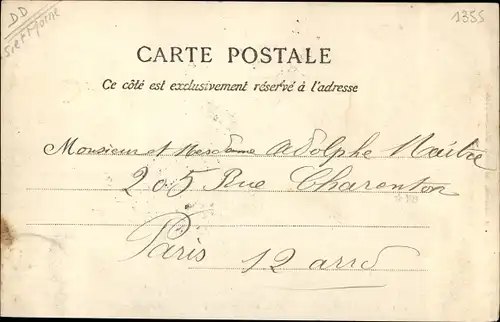 DD
S et Marne
1355
CARTE POSTALE
Ce côté est exclusivement réservé à l'adresse
Monsieur et Mesdame Adolphe Maître
205 Rue Charenton
Paris 12 arrd